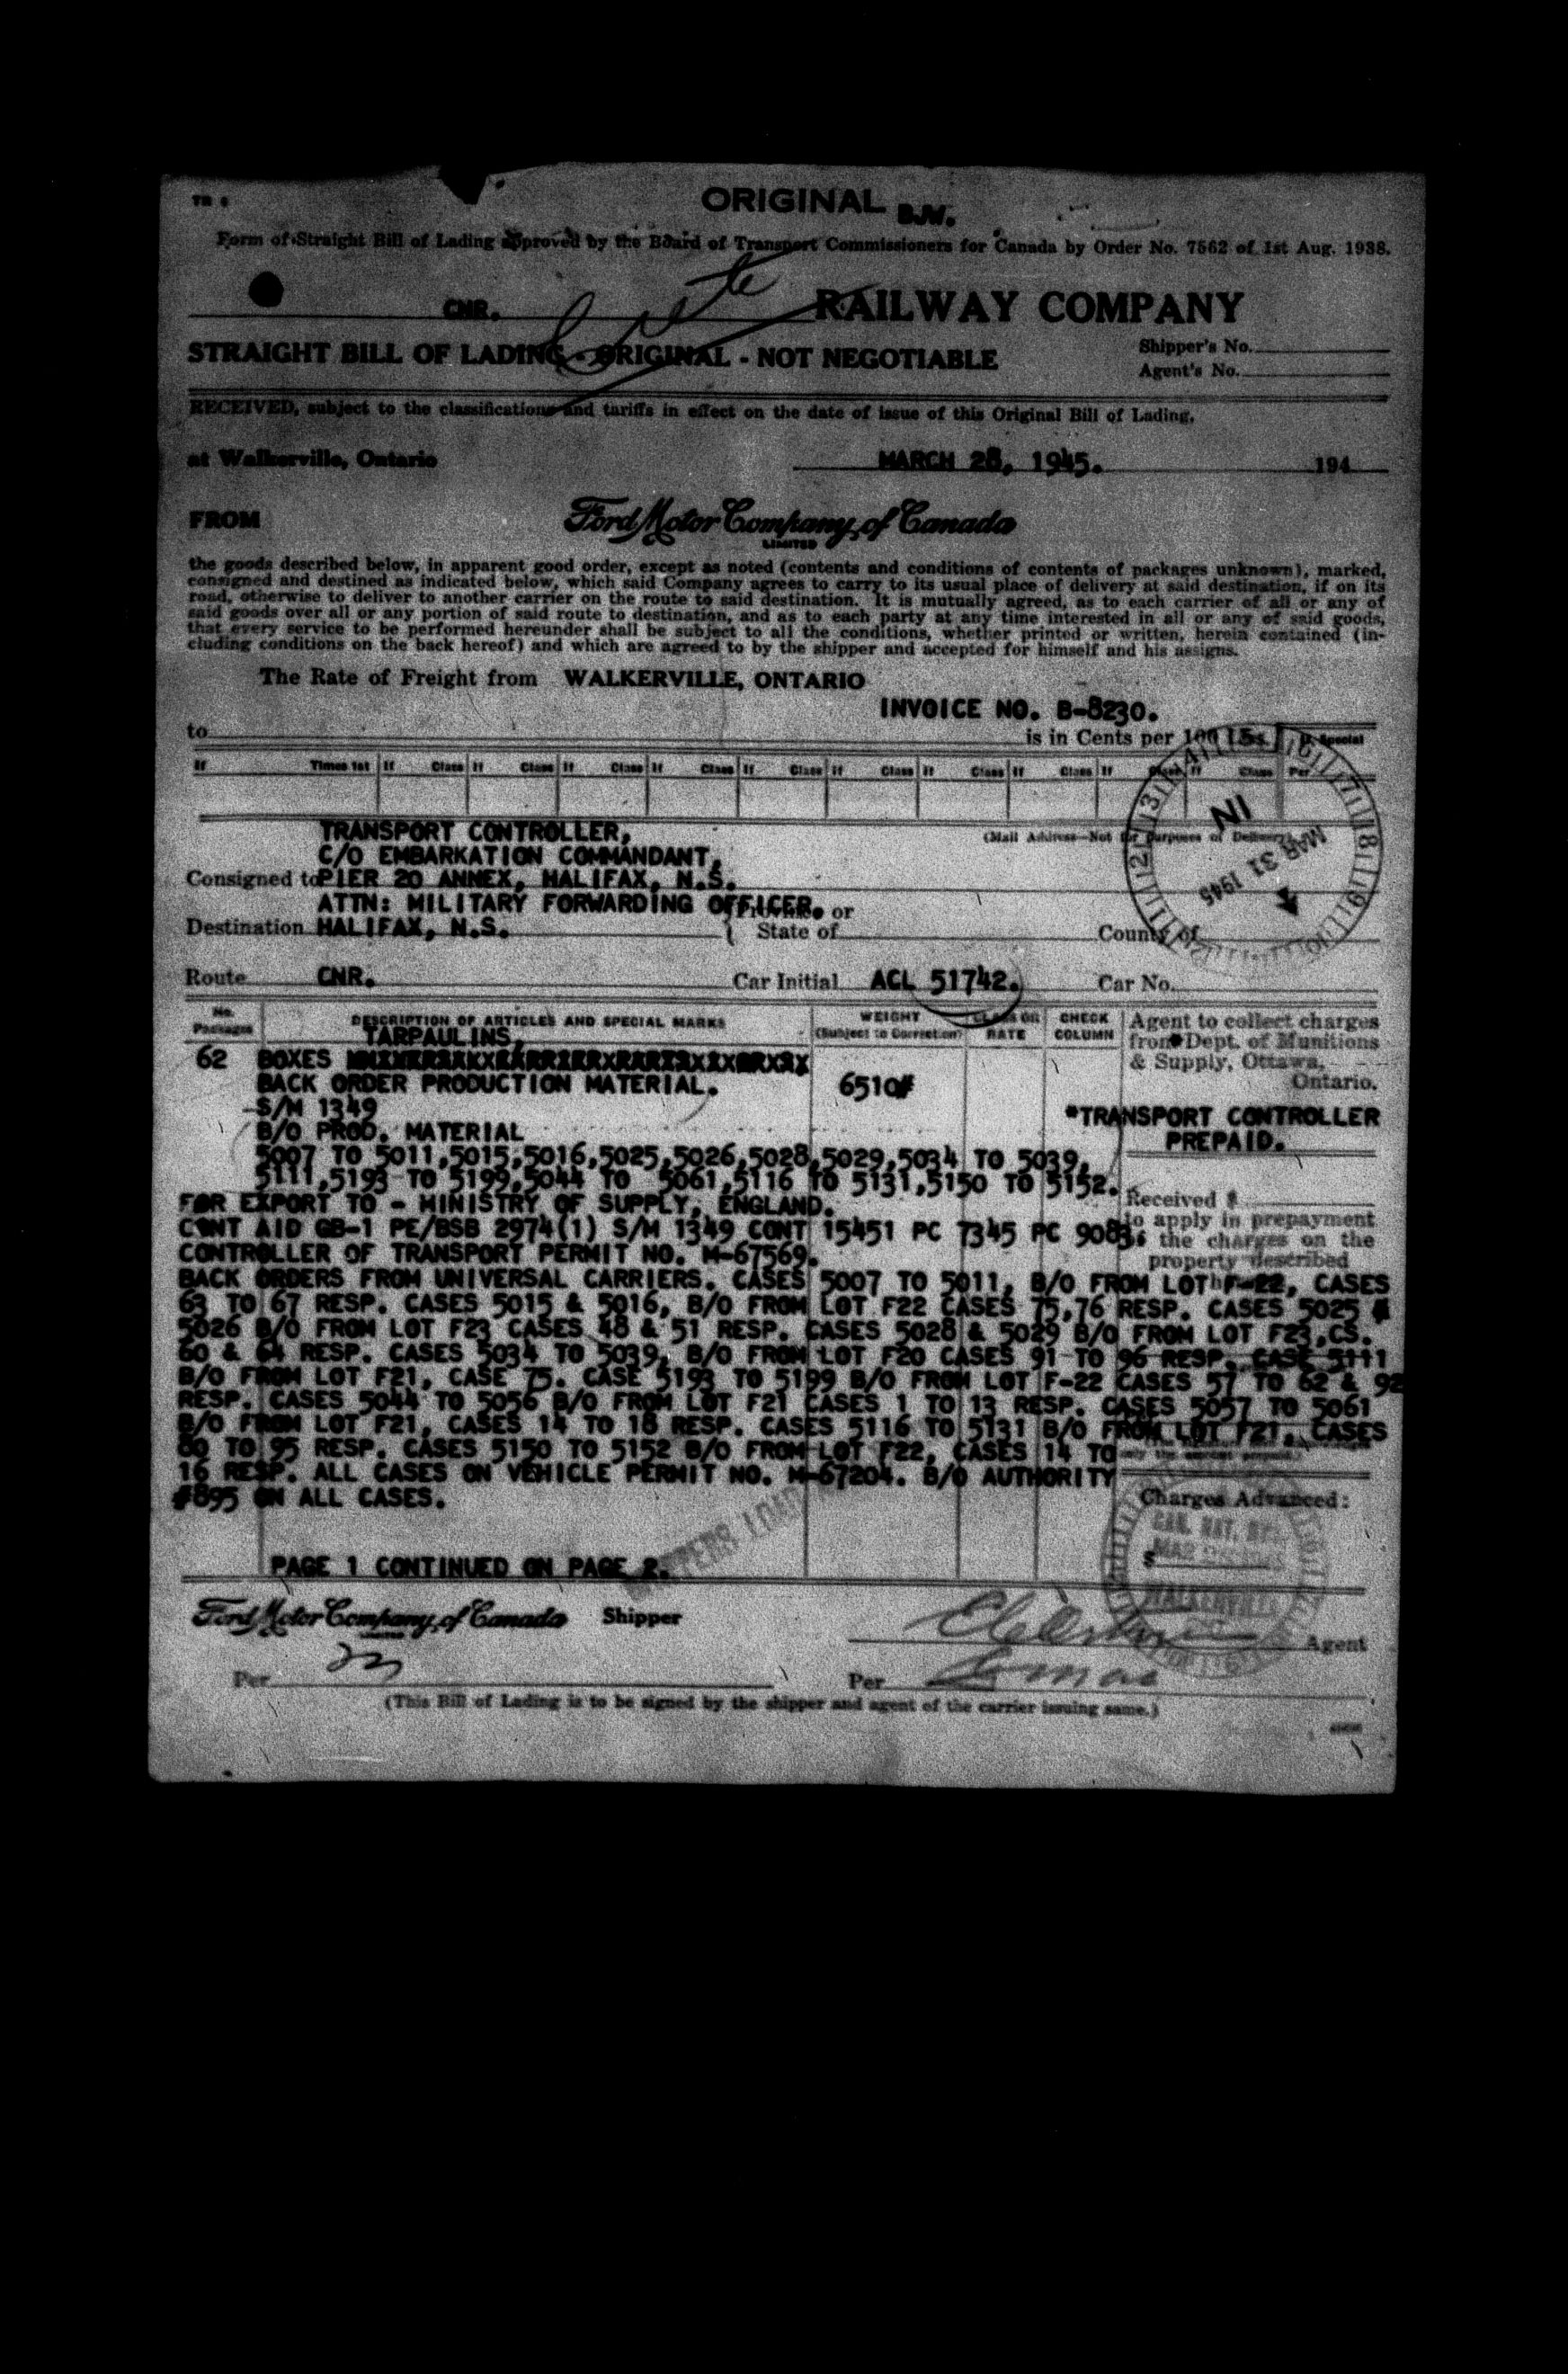 ORIGINAL B.J.W.
Form of Straight Bill of Lading approved by the Board of Transport Commissioners for Canada by Order No. 7562 of 1st Aug. 1938.
CNR. RAILWAY COMPANY
STRAIGHT BILL OF LADING - ORIGINAL - NOT NEGOTIABLE
Shipper's No.
Agent's No.
RECEIVED, subject to the classifications and tariffs in effect on the date of issue of this Original Bill of Lading,
at Walkerville, Ontario MARCH 28, 1945. 194
FROM Ford Motor Company of Canada
LIMITED
the goods described below, in apparent good order, except as noted (contents and conditions of contents of packages unknown), marked,
consigned and destined as indicated below, which said Company agrees to carry to its usual place of delivery at said destination, if on its
road, otherwise to deliver to another carrier on the route to said destination. It is mutually agreed, as to each carrier of all or any of
said goods over all or any portion of said route to destination, and as to each party at any time interested in all or any of said goods,
that every service to be performed hereunder shall be subject to all the conditions, whether printed or written, herein contained (in-
cluding conditions on the back hereof) and which are agreed to by the shipper and accepted for himself and his assigns.
The Rate of Freight from WALKERVILLE, ONTARIO
INVOICE NO. B-8230.
to is in Cents per 100 Lbs. If Special
If Times 1st If Class If Class If Class If Class If Class If Class If Class If Class If Class If Class Per
TRANSPORT CONTROLLER,
(Mail Address—Not for Purposes of Delivery)
C/O EMBARKATION COMMANDANT,
Consigned to PIER 20 ANNEX, HALIFAX, N.S.
ATTN: MILITARY FORWARDING OFFICER.
Destination HALIFAX, N.S. Province or State of County of
IN
MAR 31 1945
Route CNR. Car Initial ACL 51742. Car No.
No. Packages DESCRIPTION OF ARTICLES AND SPECIAL MARKS WEIGHT (Subject to Correction) CLASS OR RATE CHECK COLUMN
Agent to collect charges
from *Dept. of Munitions
& Supply, Ottawa,
Ontario.
*TRANSPORT CONTROLLER
PREPAID.
TARPAULINS,
62 BOXES
BACK ORDER PRODUCTION MATERIAL. 6510#
S/M 1349
B/O PROD. MATERIAL
5007 TO 5011,5015,5016,5025,5026,5028,5029,5034 TO 5039,
5111,5193 TO 5199,5044 TO 5061,5116 TO 5131,5150 TO 5152.
Received $
to apply in prepayment
of the charges on the
property described
FOR EXPORT TO - MINISTRY OF SUPPLY, ENGLAND.
CONT AID GB-1 PE/BSB 2974(1) S/M 1349 CONT 15451 PC 7345 PC 9083.
CONTROLLER OF TRANSPORT PERMIT NO. M-67569.
BACK ORDERS FROM UNIVERSAL CARRIERS. CASES 5007 TO 5011, B/O FROM LOT F-22, CASES
63 TO 67 RESP. CASES 5015 & 5016, B/O FROM LOT F22 CASES 75,76 RESP. CASES 5025 &
5026 B/O FROM LOT F23 CASES 48 & 51 RESP. CASES 5028 & 5029 B/O FROM LOT F23,CS.
60 & 64 RESP. CASES 5034 TO 5039, B/O FROM LOT F20 CASES 91 TO 96 RESP. CASE 5111
B/O FROM LOT F21, CASE 75. CASE 5193 TO 5199 B/O FROM LOT F-22 CASES 57 TO 62 & 92
RESP. CASES 5044 TO 5056 B/O FROM LOT F21 CASES 1 TO 13 RESP. CASES 5057 TO 5061
B/O FROM LOT F21, CASES 14 TO 18 RESP. CASES 5116 TO 5131 B/O FROM LOT F21, CASES
80 TO 95 RESP. CASES 5150 TO 5152 B/O FROM LOT F22, CASES 14 TO
16 RESP. ALL CASES ON VEHICLE PERMIT NO. M-67204. B/O AUTHORITY
#895 ON ALL CASES.
Charges Advanced:
$
CAN. NAT. RYS.
MAR
WALKERVILLE
PAGE 1 CONTINUED ON PAGE 2.
Ford Motor Company of Canada Shipper
LIMITED
Agent
Per Per
(This Bill of Lading is to be signed by the shipper and agent of the carrier issuing same.)